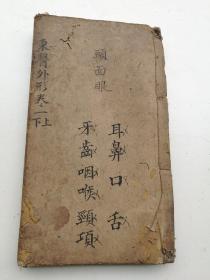 東醫外形卷二上下
頭面眼
耳鼻口舌
牙齒咽喉頸項